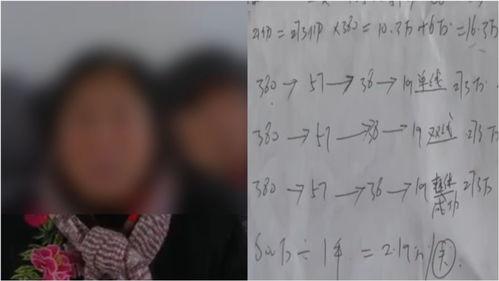 =273仰 ×380 = 10.3万+6万 = 16.3万
380 → 57 → 38 → 19 单线 273万
380 → 57 → 38 → 19 双线 273万
380 → 57 → 38 → 19 整体成功 273万
800万 ÷ 1年 = 2.19万/天